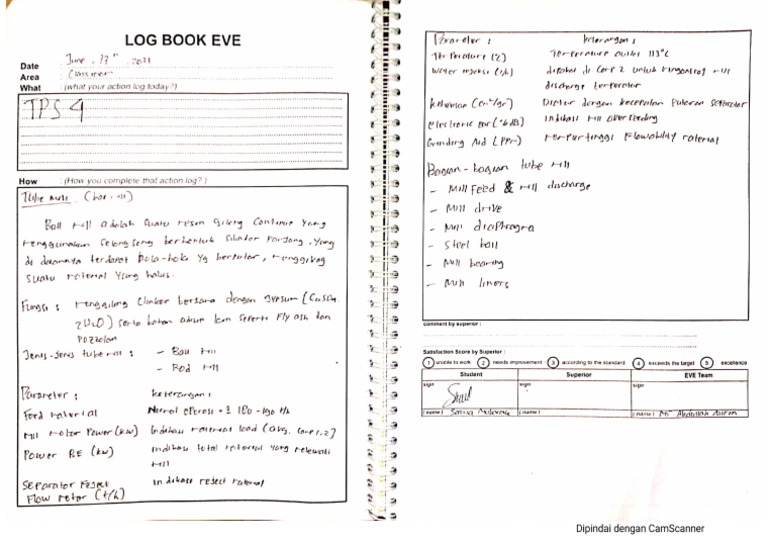 LOG BOOK EVE
Date : June, 17th, 2021
Area :
What : (what your action log today?)
TPS 4
How : (How you complete that action log? )
Tube Mill
Ball Mill adalah suatu mesin Giling Continue yang
menggunakan selongsong berbentuk silinder Panjang, yang
di dalamnya terdapat Bola-bola yg berputar, menggiling
suatu material yang halus.
Fungsi : menggiling Clinker bersama dengan gypsum (CaSO4.
2H2O) serta bahan aditif lain seperti Fly ash dan
Pozzolan
Jenis-Jenis tube mill : - Ball Mill
- Rod Mill
Parameter : keterangan :
Feed material Normal operasi = ± 180 - 190 t/h
Mill motor Power (kW) Indikasi material load
Power BE (kW) Indikasi total material yang melewati
Mill
Separator reject Indikasi reject material
Flow meter (t/h)
Parameter : keterangan :
Temperature Temperature outlet 113°C
Water injeksi dipakai di untuk mengontrol mill
discharge temperatur
kehalusan (cm²/gr) Diatur dengan kecepatan putaran separator
electronic ear Indikasi mill overfeeding
Grinding Aid (PPm) mempertinggi flowability material
Bagian-bagian tube mill
- Mill Feed & mill discharge
- Mill drive
- Mill diaphragma
- Steel ball
- Mill bearing
- Mill liners
comment by superior :
Satisfaction Score by Superior :
1 unable to work 2 needs improvement 3 according to the standard 4 exceeds the target 5 excellence
Student Superior EVE Team
sign sign sign
( name ) ( name ) ( name )
Dipindai dengan CamScanner